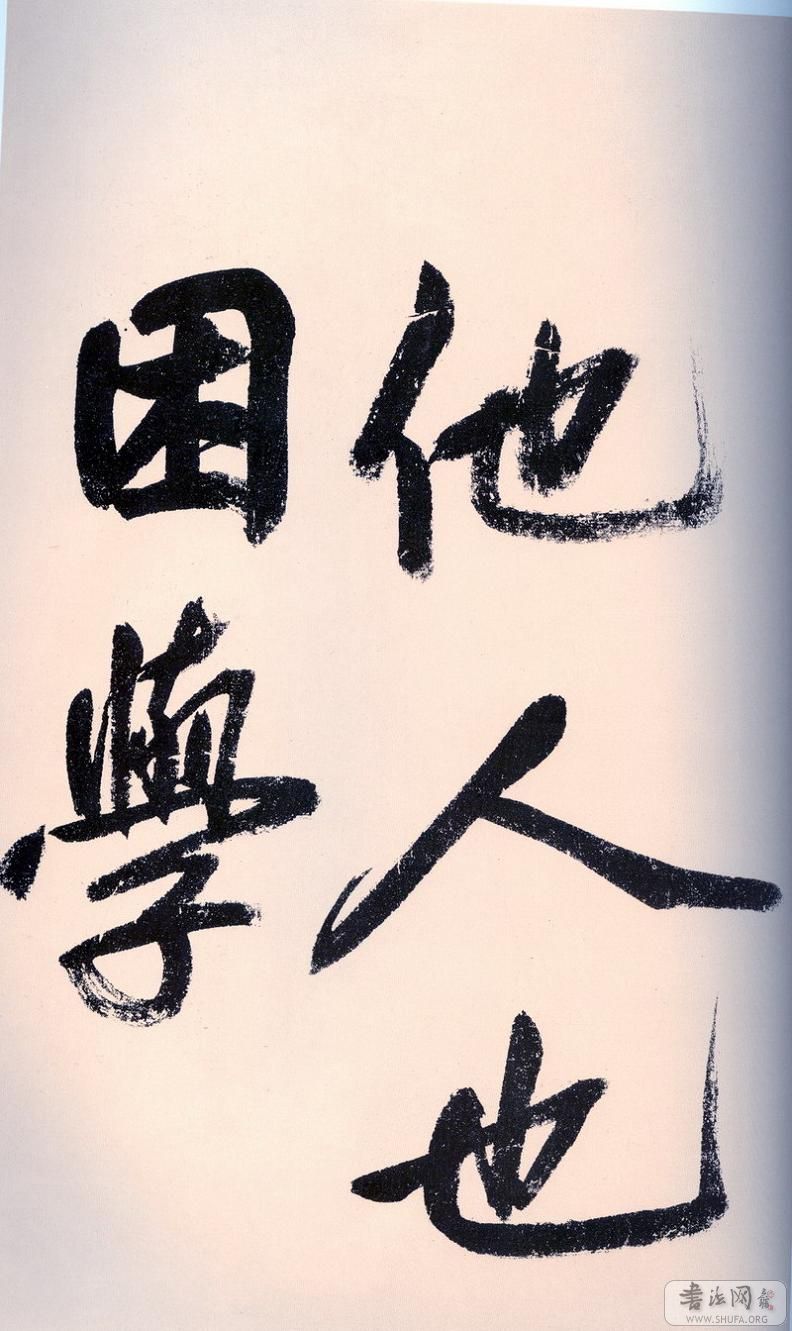 他人也
困學
書法网
WWW.SHUFA.ORG